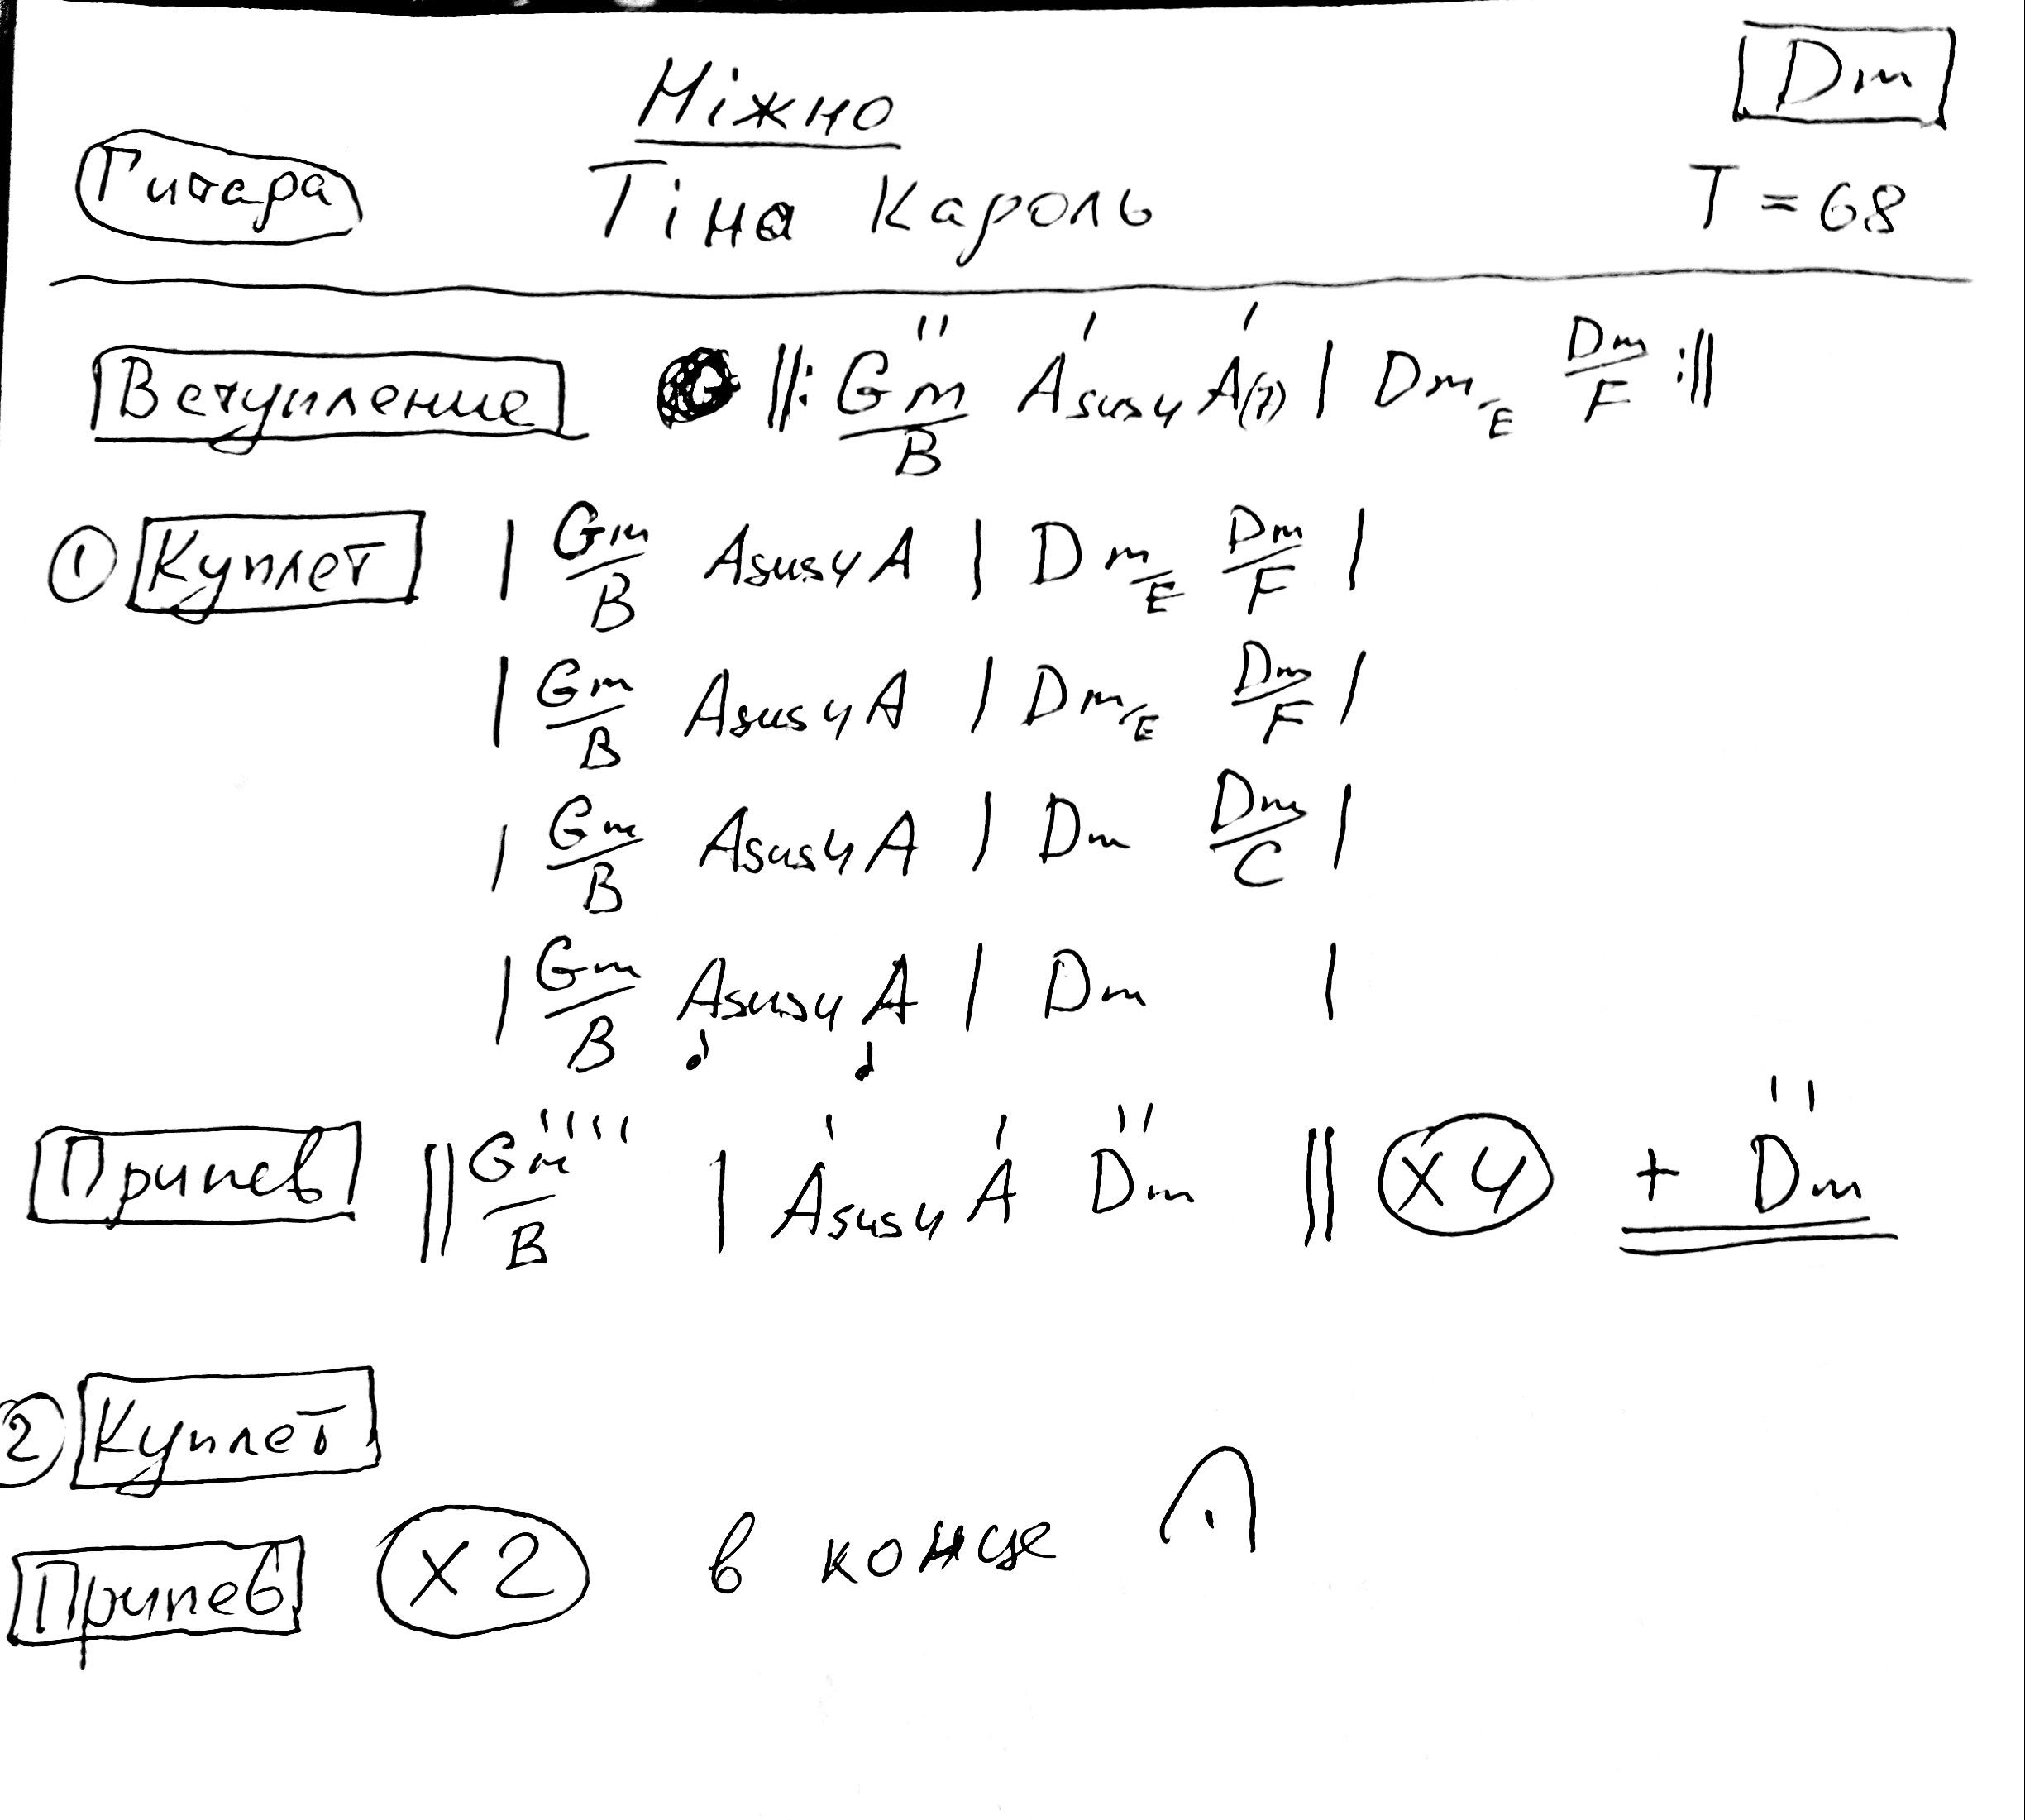 Ніжно
Dm
Гитара
Тіна Кароль
T = 68
Вступление ||: Gm/B Asus4 A(7) | Dm/E Dm/F :||
① Куплет | Gm/B Asus4 A | Dm/E Dm/F |
| Gm/B Asus4 A | Dm/E Dm/F |
| Gm/B Asus4 A | Dm Dm/C |
| Gm/B Asus4 A | Dm |
Припев || Gm/B | Asus4 A Dm || x4 + Dm
② Куплет
Припев x2 в конце 𝄐